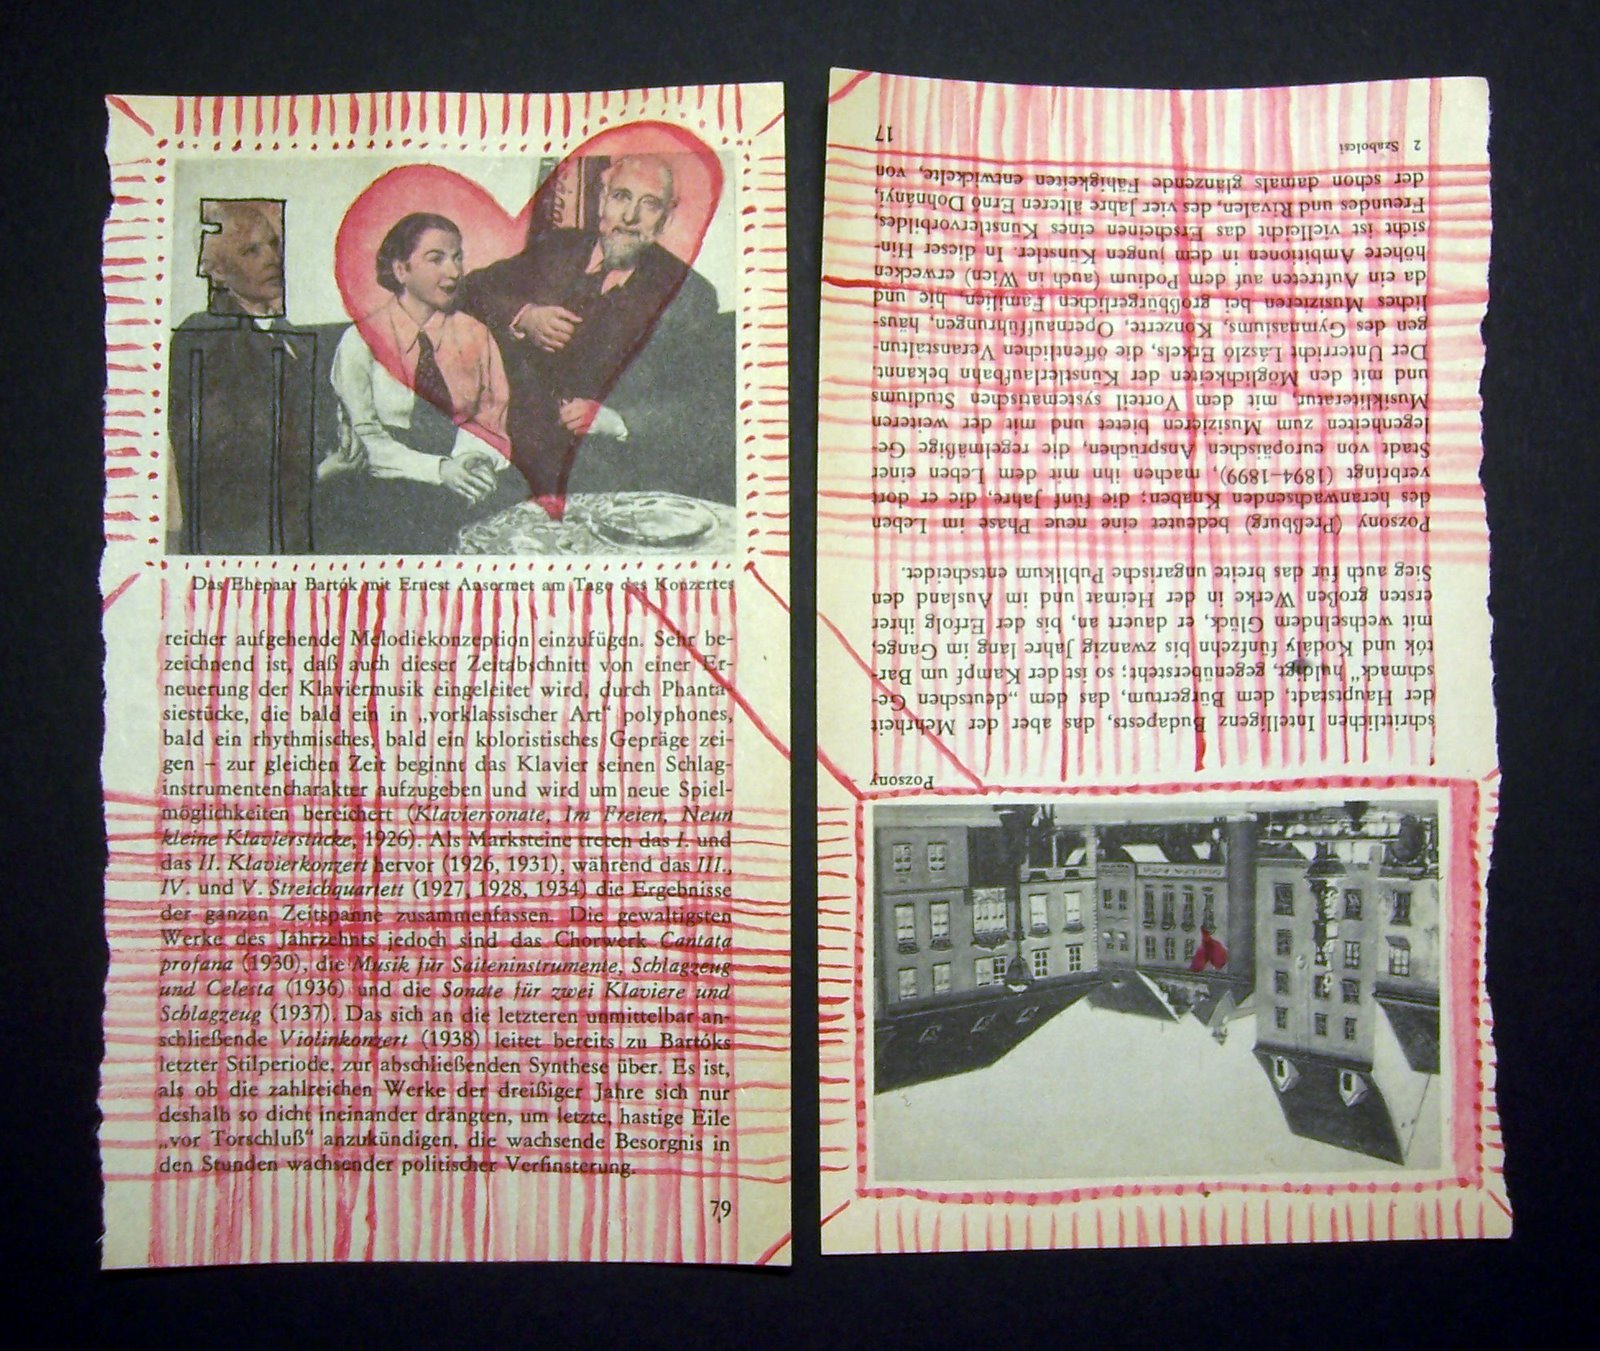 Das Ehepaar Bartók mit Ernest Ansermet am Tage des Konzertes
reicher aufgehende Melodiekonzeption einzufügen. Sehr be-
zeichnend ist, daß auch dieser Zeitabschnitt von einer Er-
neuerung der Klaviermusik eingeleitet wird, durch Phanta-
siestücke, die bald ein in „vorklassischer Art“ polyphones,
bald ein rhythmisches, bald ein koloristisches Gepräge zei-
gen – zur gleichen Zeit beginnt das Klavier seinen Schlag-
instrumentencharakter aufzugeben und wird um neue Spiel-
möglichkeiten bereichert (Klaviersonate, Im Freien, Neun
kleine Klavierstücke, 1926). Als Marksteine treten das I. und
das II. Klavierkonzert hervor (1926, 1931), während das III.,
IV. und V. Streichquartett (1927, 1928, 1934) die Ergebnisse
der ganzen Zeitspanne zusammenfassen. Die gewaltigsten
Werke des Jahrzehnts jedoch sind das Chorwerk Cantata
profana (1930), die Musik für Saiteninstrumente, Schlagzeug
und Celesta (1936) und die Sonate für zwei Klaviere und
Schlagzeug (1937). Das sich an die letzteren unmittelbar an-
schließende Violinkonzert (1938) leitet bereits zu Bartóks
letzter Stilperiode, zur abschließenden Synthese über. Es ist,
als ob die zahlreichen Werke der dreißiger Jahre sich nur
deshalb so dicht ineinander drängten, um letzte, hastige Eile
„vor Torschluß“ anzukündigen, die wachsende Besorgnis in
den Stunden wachsender politischer Verfinsterung.
79
Pozsony
schrittlichen Intelligenz Budapests, das aber der Mehrheit
der Hauptstadt, dem Bürgertum, das dem „deutschen Ge-
schmack“ huldigt, gegenübersteht; so ist der Kampf um Bar-
tók und Kodály fünfzehn bis zwanzig Jahre lang im Gange,
mit wechselndem Glück, er dauert an, bis der Erfolg ihrer
ersten großen Werke in der Heimat und im Ausland den
Sieg auch für das breite ungarische Publikum entscheidet.
Pozsony (Preßburg) bedeutet eine neue Phase im Leben
des heranwachsenden Knaben; die fünf Jahre, die er dort
verbringt (1894–1899), machen ihn mit dem Leben einer
Stadt von europäischen Ansprüchen, die regelmäßige Ge-
legenheiten zum Musizieren bietet und mit der weiteren
Musikliteratur, mit dem Vorteil systematischen Studiums
und mit den Möglichkeiten der Künstlerlaufbahn bekannt.
Der Unterricht László Erkels, die öffentlichen Veranstaltun-
gen des Gymnasiums, Konzerte, Opernaufführungen, häus-
liches Musizieren bei großbürgerlichen Familien, hie und
da ein Auftreten auf dem Podium (auch in Wien) erwecken
höhere Ambitionen in dem jungen Künstler. In dieser Hin-
sicht ist vielleicht das Erscheinen eines Künstlervorbildes,
Freundes und Rivalen, des vier Jahre älteren Ernő Dohnányi,
der schon damals glänzende Fähigkeiten entwickelte, von
2 Szabolcsi
17